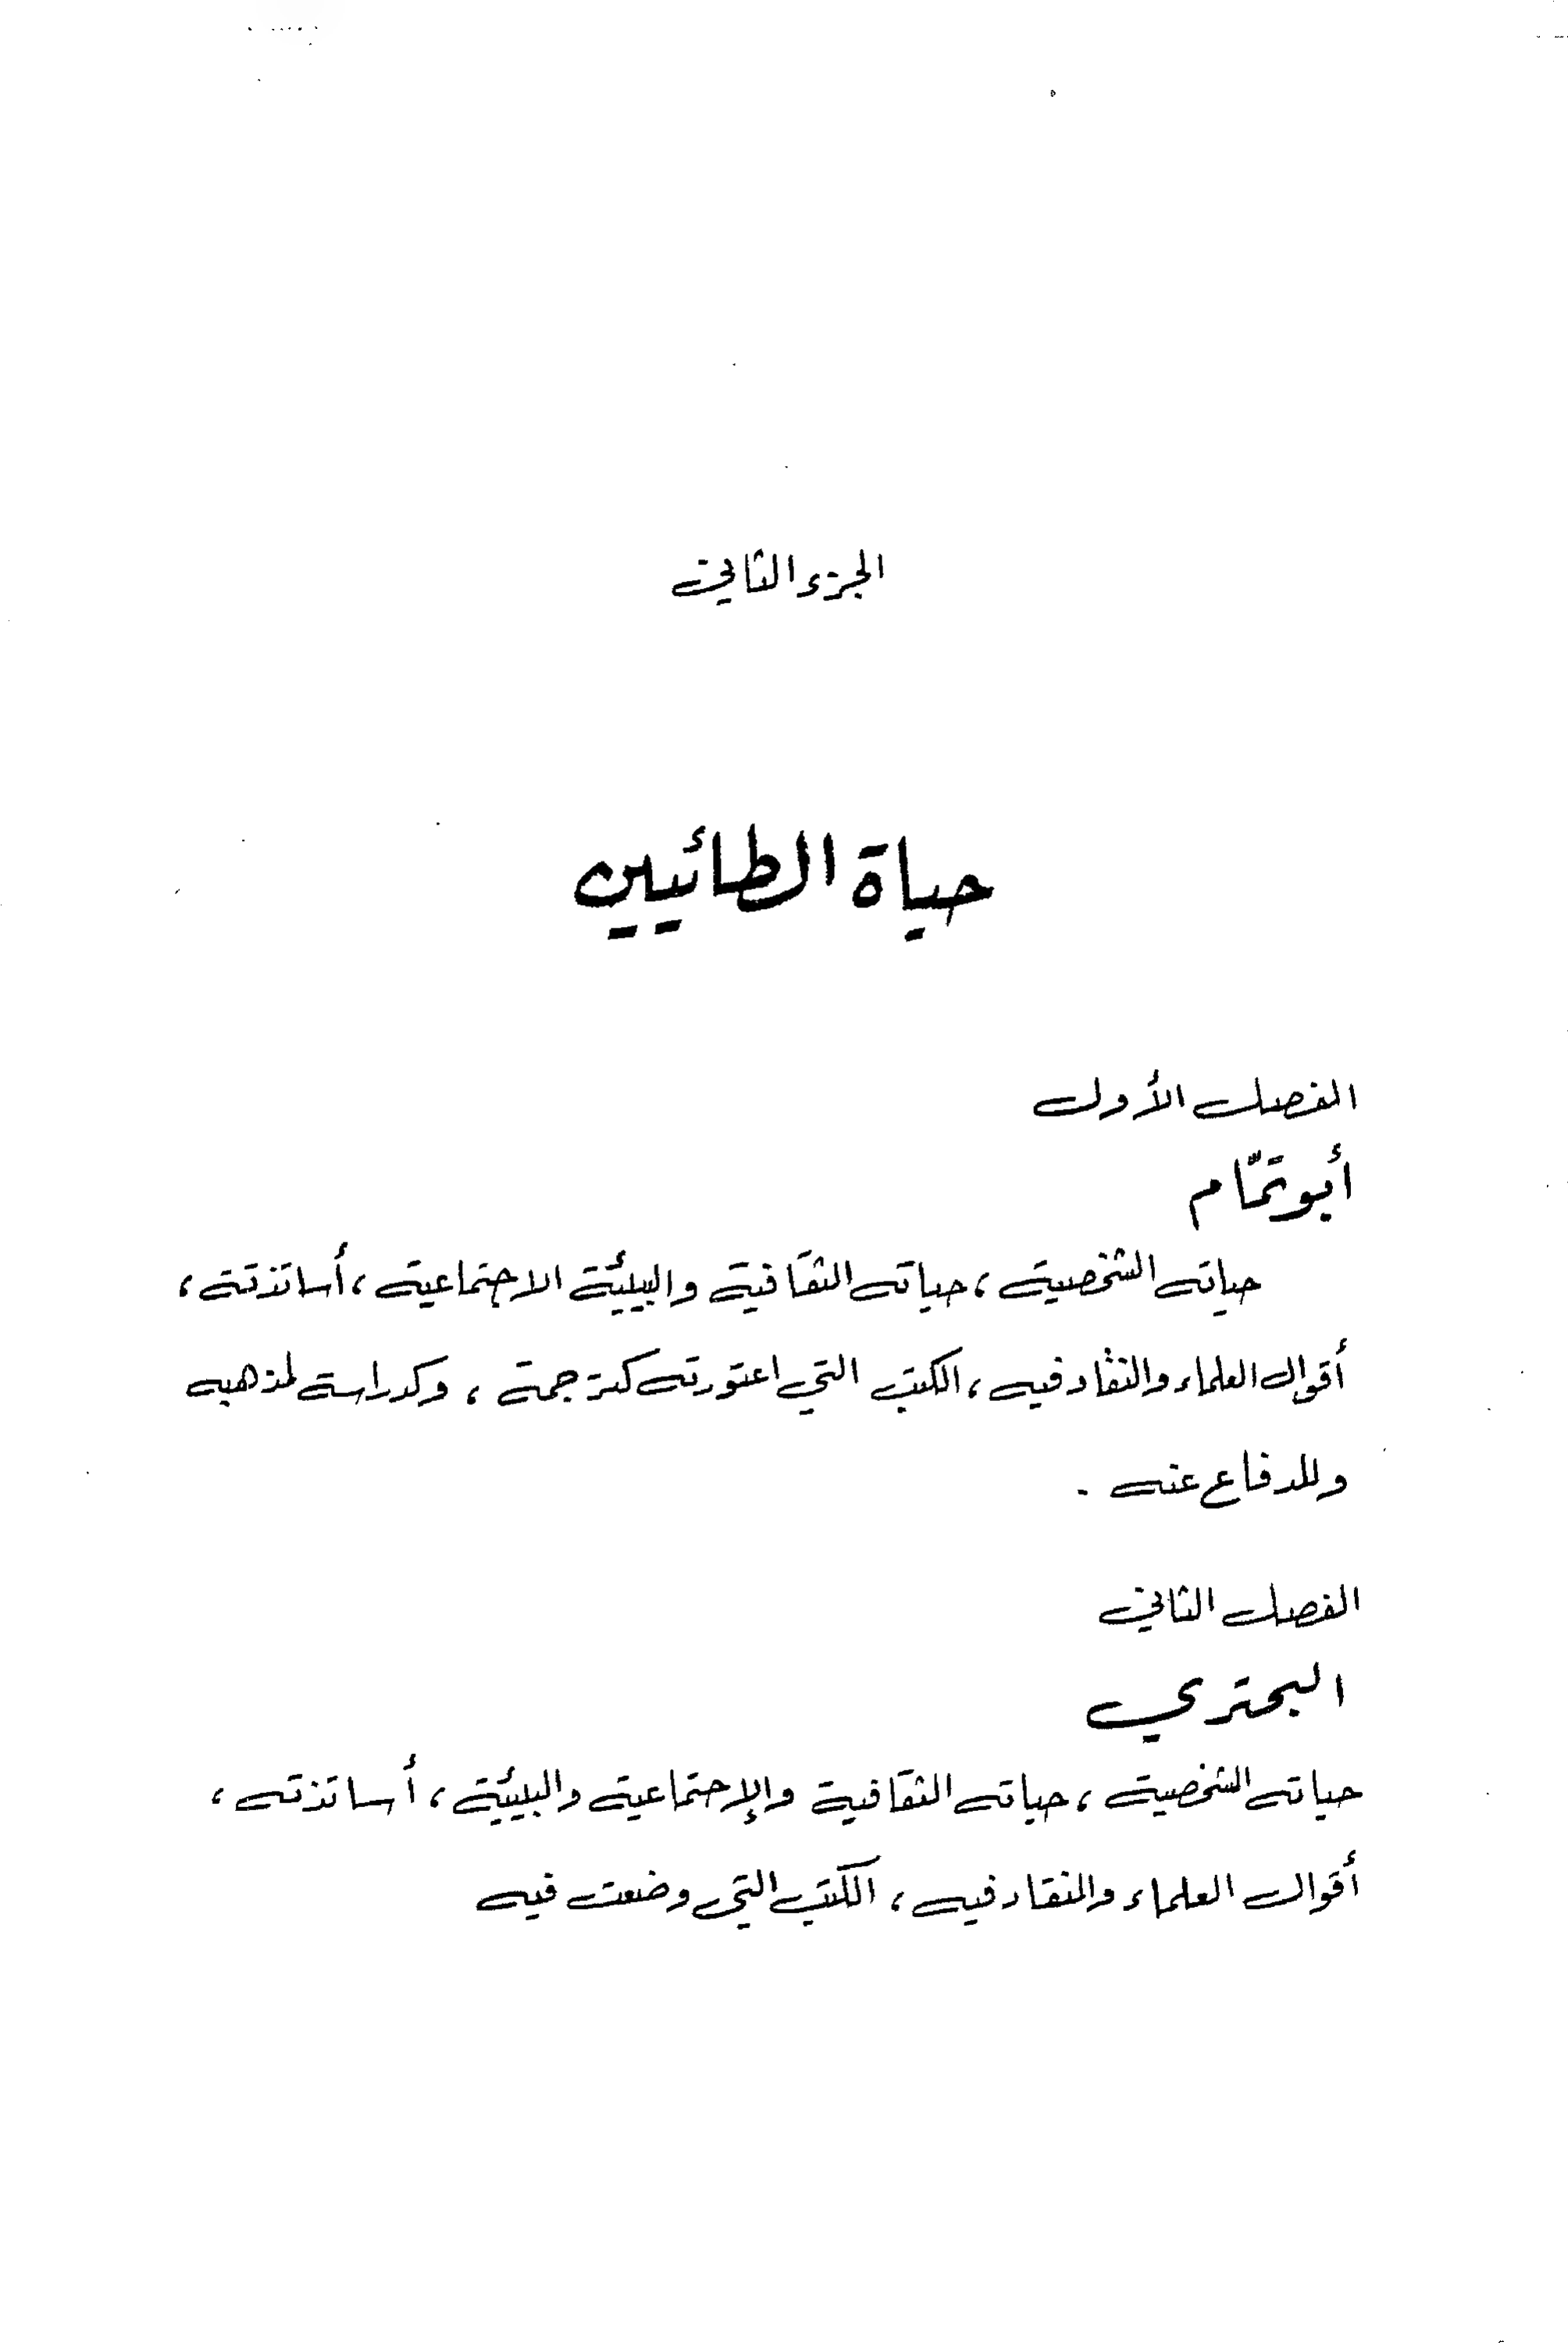 الجزء الثاني
حياة الطائيين
الفصل الأول
أبو تمّام
حياته الشخصية ، حياته الثقافية والبيئية الاجتماعية ، أساتذته ،
أقوال العلماء والنقاد فيه ، الكتب التي اعتورته كترجمة ، وكدراسة لمذهبه
وللدفاع عنه .
الفصل الثاني
البحتري
حياته الشخصية ، حياته الثقافية والإجتماعية والبيئية ، أساتذته ،
أقوال العلماء والنقاد فيه ، الكتب التي وضعت فيه